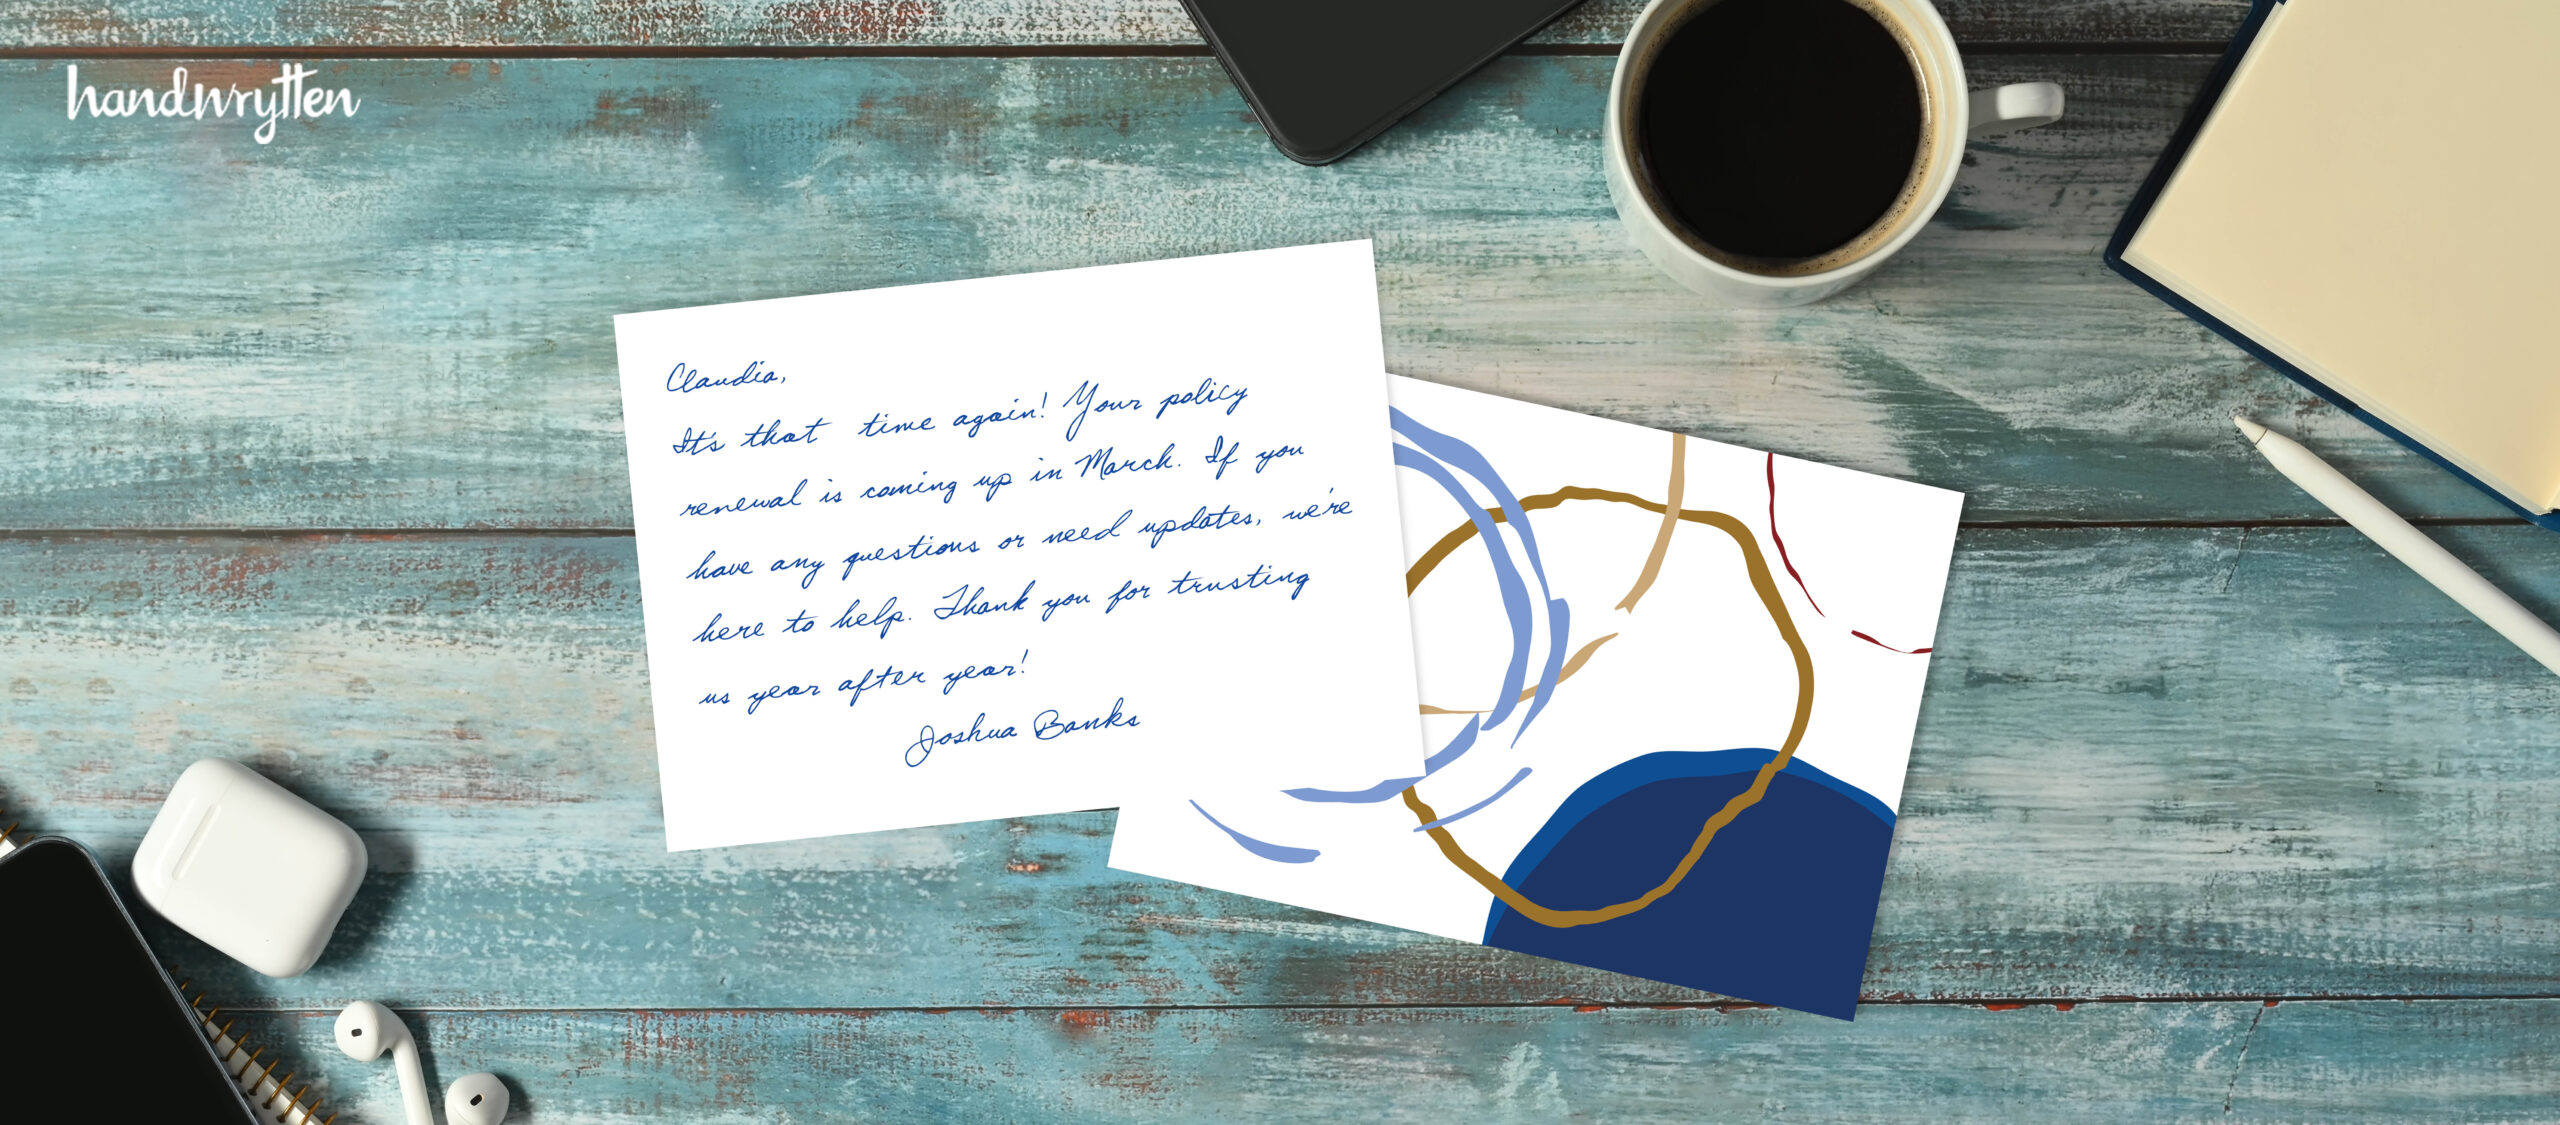 handwrytten
Claudia,
It's that time again! Your policy
renewal is coming up in March. If you
have any questions or need updates, we're
here to help. Thank you for trusting
us year after year!
Joshua Banks